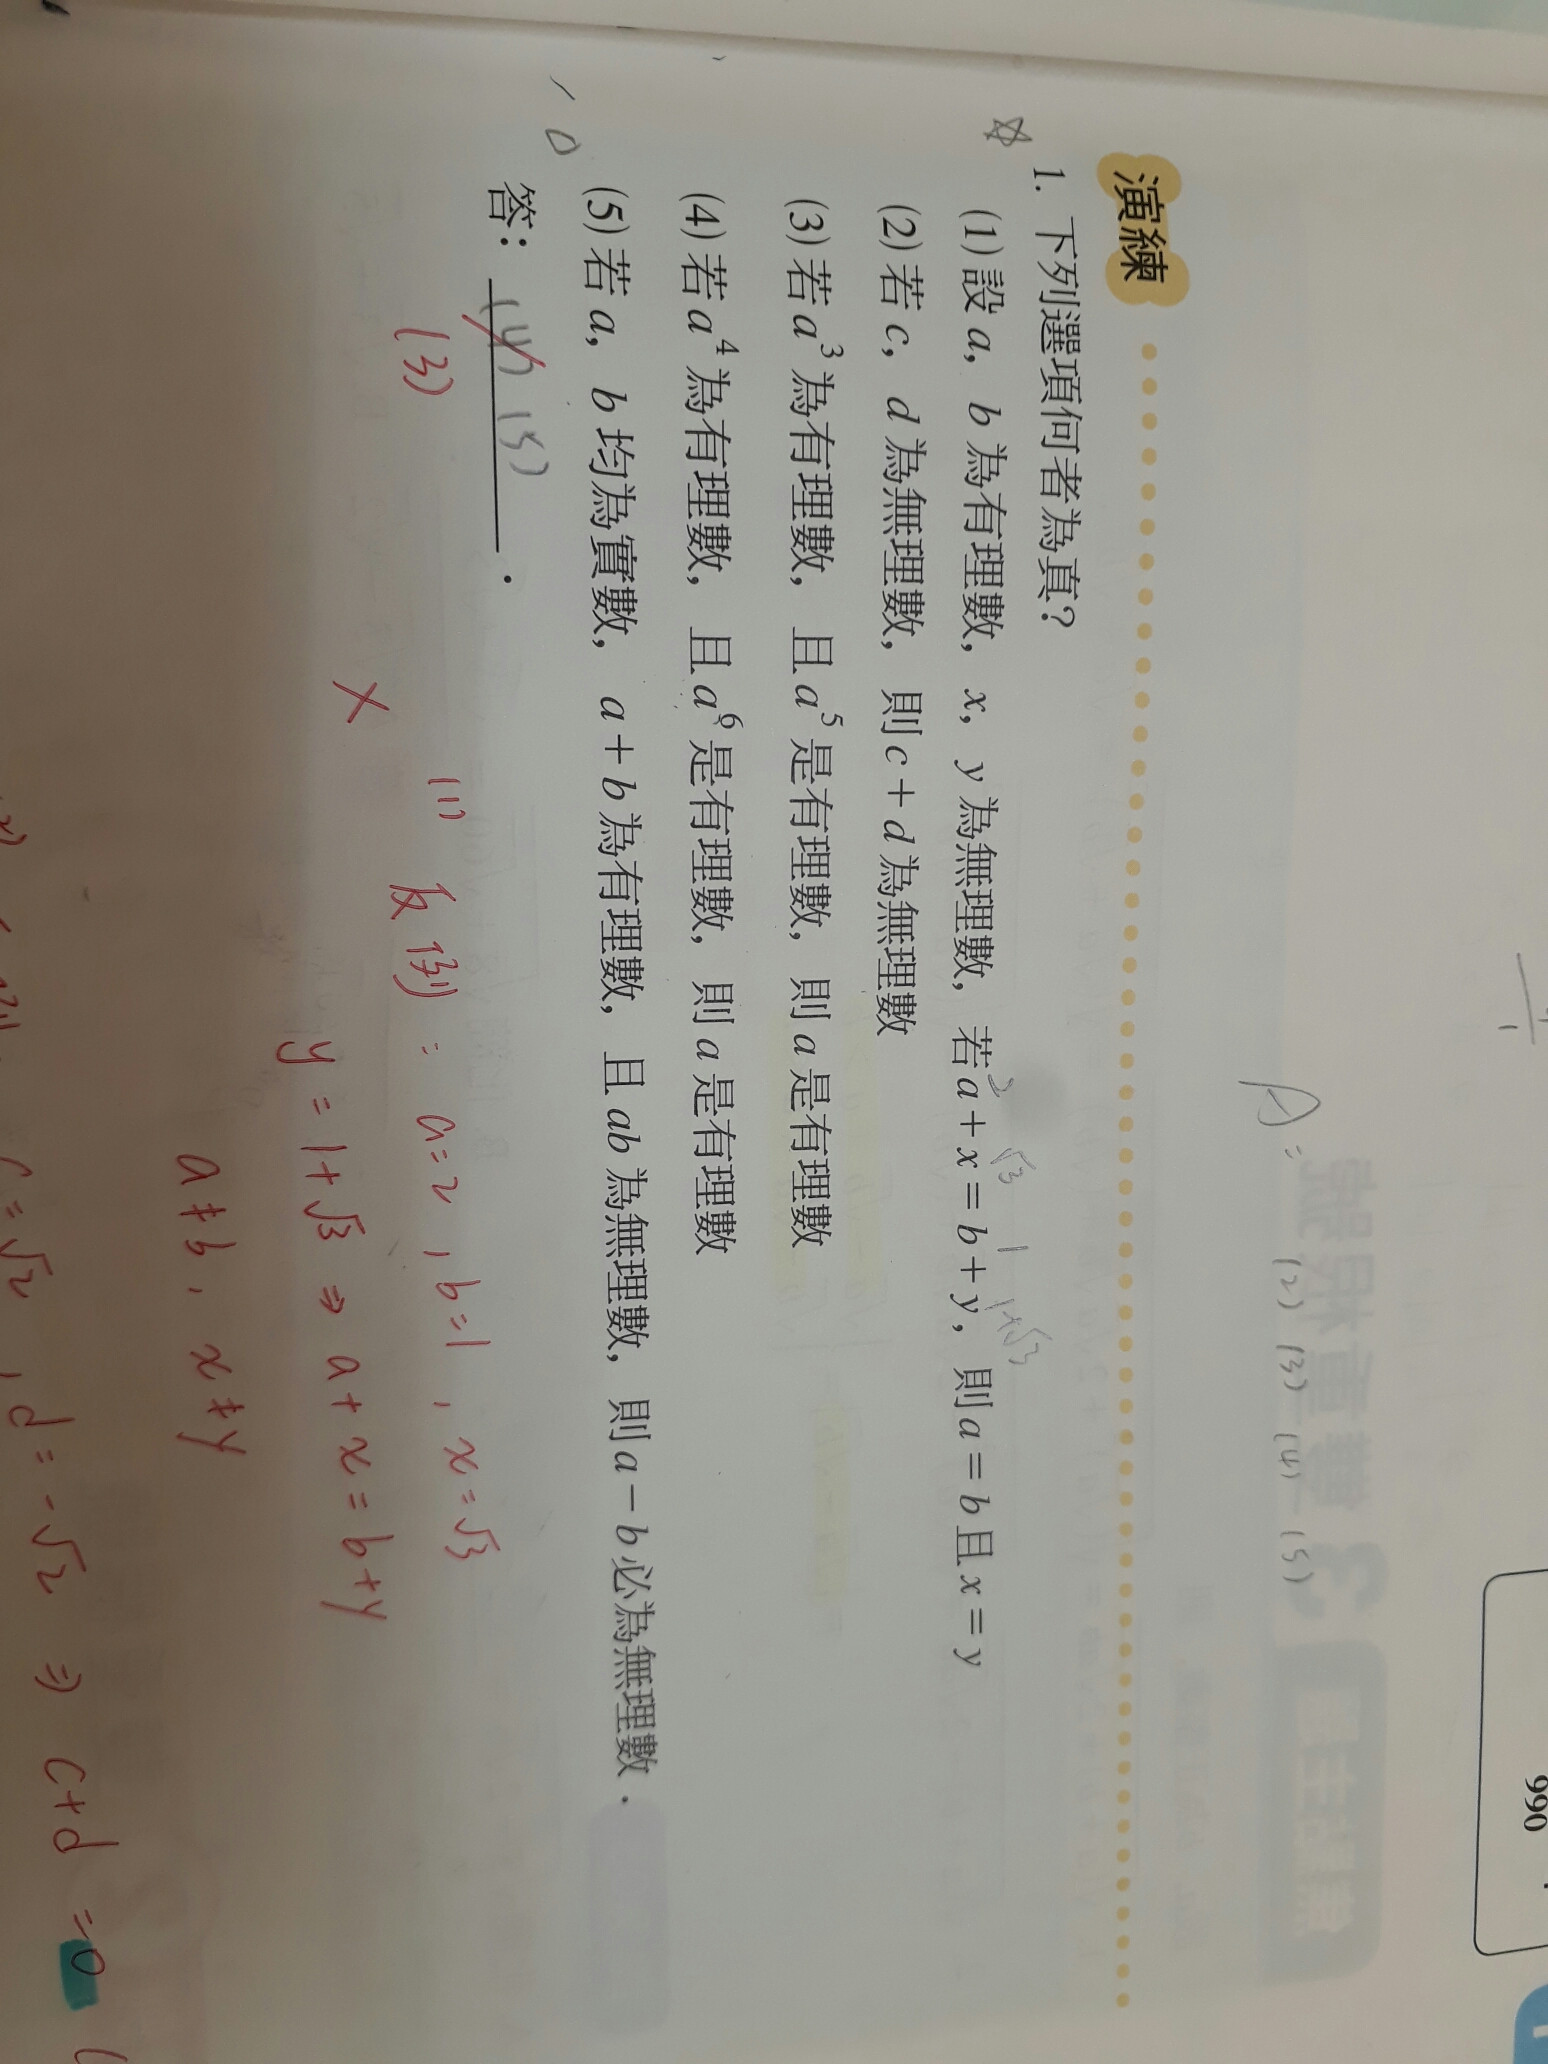 990
A=
(2) (3) (4) (5)
演練
☆ 1. 下列選項何者為真?
(1) 設 a, b 為有理數, x, y 為無理數, 若 a + x = b + y, 則 a = b 且 x = y
2 √3 1 1+√3
(2) 若 c, d 為無理數, 則 c + d 為無理數
(3) 若 a³ 為有理數, 且 a⁵ 是有理數, 則 a 是有理數
(4) 若 a⁴ 為有理數, 且 a⁶ 是有理數, 則 a 是有理數
(5) 若 a, b 均為實數, a + b 為有理數, 且 ab 為無理數, 則 a − b 必為無理數.
答: (4) (5) .
(3)
(1) 反例: a=2, b=1, x=√3
y = 1+√3 ⇒ a + x = b + y
a≠b, x≠y
c=√2, d=-√2 ⇒ c+d =0